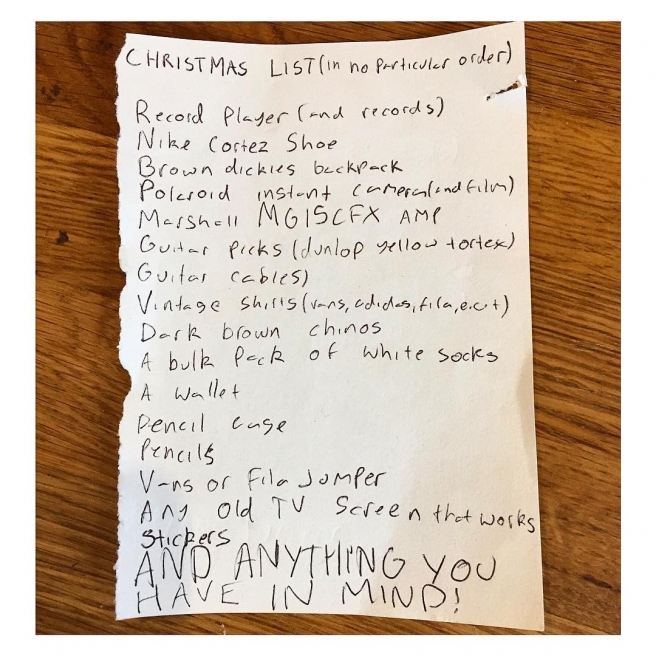 CHRISTMAS LIST (in no particular order)
Record Player (and records)
Nike Cortez Shoe
Brown dickies backpack
Polaroid instant camera (and film)
Marshall MG15CFX AMP
Guitar picks (dunlop yellow tortex)
Guitar cables)
Vintage shirts (vans, adidas, fila, e.c.t)
Dark brown chinos
A bulk Pack of white socks
A wallet
Pencil case
Pencils
Vans or Fila Jumper
Any old TV Screen that works
Stickers
AND ANYTHING YOU
HAVE IN MIND!